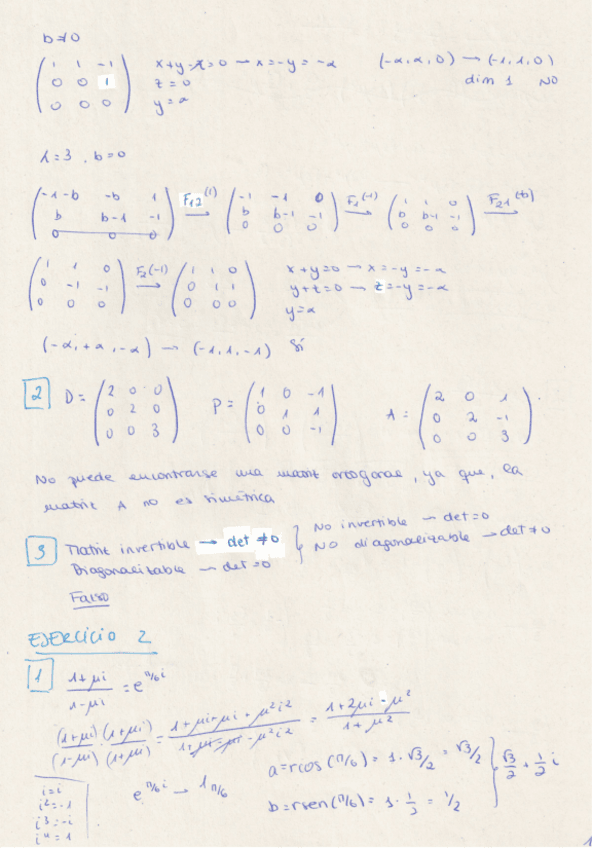 b≠0
( 1 1 -1 ; 0 0 1 ; 0 0 0 ) x+y-z=0 → x=-y=-α (-α, α, 0) → (-1, 1, 0)
z=0 dim 1 NO
y=α
λ=3, b=0
( -1-b -b 1 ; b b-1 -1 ; 0 0 0 ) F12(1) → ( -1 -1 0 ; b b-1 -1 ; 0 0 0 ) F1(-1) → ( 1 1 0 ; b b-1 -1 ; 0 0 0 ) F21(-b) →
( 1 1 0 ; 0 -1 -1 ; 0 0 0 ) F2(-1) → ( 1 1 0 ; 0 1 1 ; 0 0 0 ) x+y=0 → x=-y=-α
y+z=0 → z=-y=-α
y=α
(-α, +α, -α) → (-1, 1, -1) Sí
2 D= ( 2 0 0 ; 0 2 0 ; 0 0 3 ) P= ( 1 0 -1 ; 0 1 1 ; 0 0 -1 ) A= ( 2 0 1 ; 0 2 -1 ; 0 0 3 ).
No puede encontrarse una matriz ortogonal, ya que, la
matriz A no es simétrica
3 Matriz invertible → det ≠0 } No invertible → det=0
Diagonalizable → det=0 NO diagonalizable → det≠0
Falso
EJERCICIO 2
1 (1+μi)/(1-μi) = e^(π/6 i)
(1+μi)/(1-μi) (1+μi)/(1+μi) = (1+μi+μi+μ²i²)/(1+μi-μi-μ²i²) = (1+2μi-μ²)/(1+μ²)
e^(π/6 i) → 1 π/6 a=rcos(π/6)= 1·√3/2 = √3/2 } √3/2 + 1/2 i
b=rsen(π/6)= 1·1/2 = 1/2
i=i
i²=-1
i³=-i
i⁴=1
1